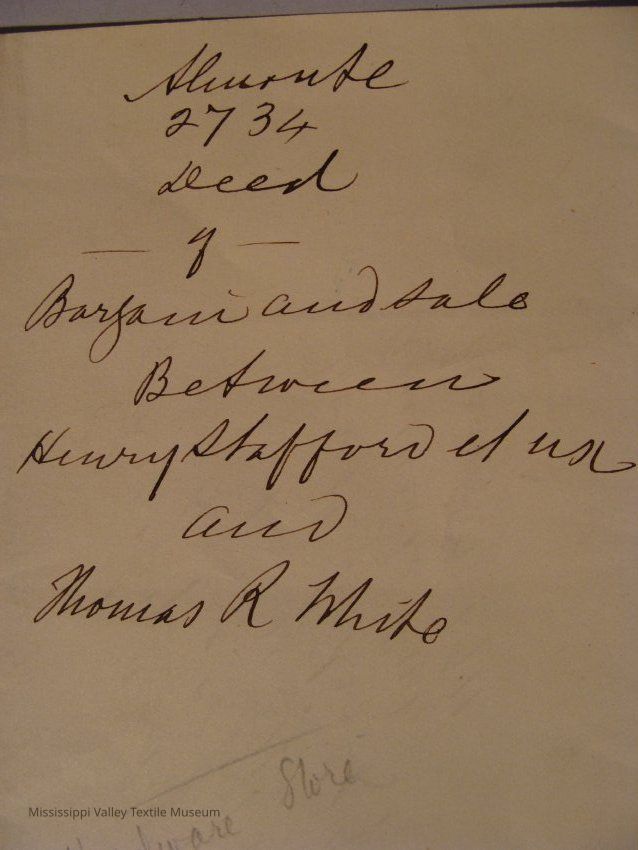 Almonte
2734
Deed
— of —
Bargain and sale
Between
Henry Stafford et ux
and
Thomas R White
Store
Mississippi Valley Textile Museum